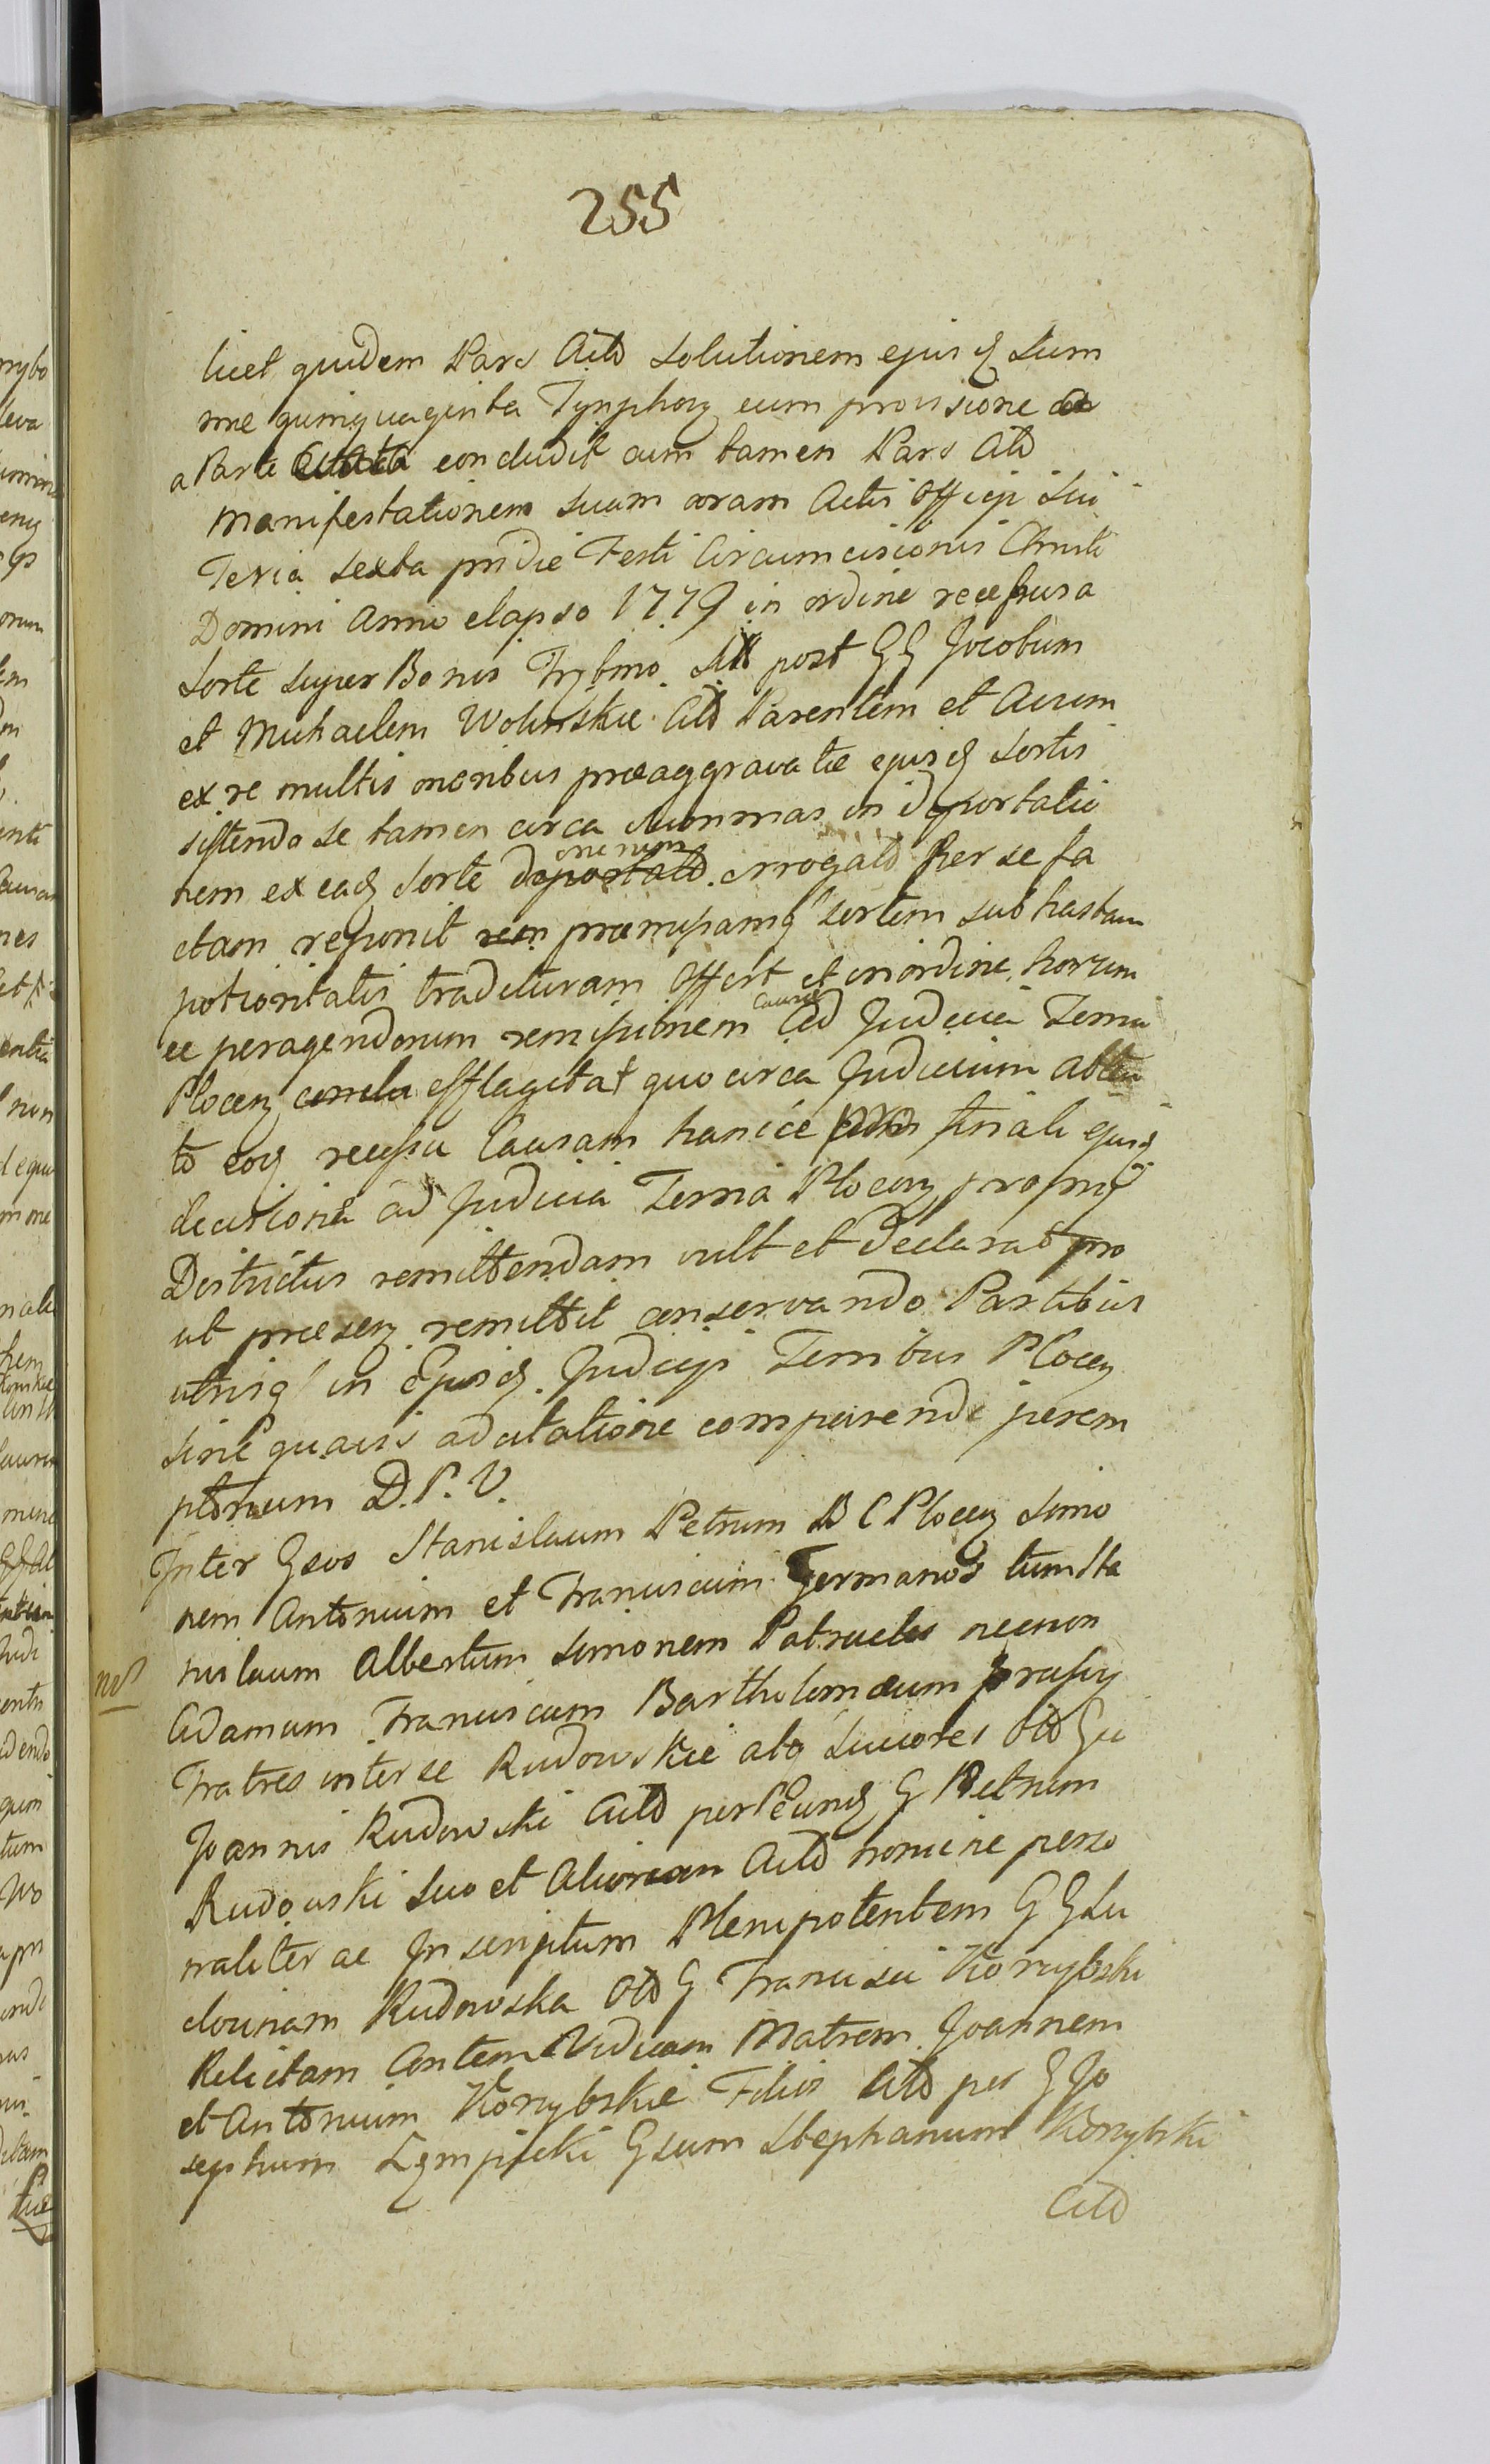 255
licet quidem Pars Actã solutionem ejusd Sum
mae quinquaginta Tynphorz cum provisione
a Parte Citata concludit cum tamen Pars Cità
Manifestationem suam coram Actis Officji Sui
Feria sexta pridie Festi Circumcisionis Christi
Domini Anno elapso 1779 in ordine recessus a
Sorte super Bonis Trybmo post GG Jacobum
et Michaelem Wolinskie Citõ Parentem et Avum
ex re multis oneribus praeaggravatae ejusd Sortis
sistendo se tamen circa summas in deportatio
nem ex ead Sorte onerum irrogatõ per se fa
ctam reponit praenuspamq sortem sub hastam
potioritatis tradituram offert et in ordine horum
ce peragendorum remissionem Causae ad Judicia Terria
Plocenz efflagitat quocirca Judicium atten
to eoq recessu Causam hancce pro finali ejusd
decisione ad Judicia Terria Plocenz propry
Districtus remittendam vult et declarat pro
ut praesenz remittit conservando Partibus
utrisq in Ejusd Judicjs Terribus Plocenz
sine quavis adcitatione comparendi perem
ptorium D. P. V.
Inter Gsos Stanislaum Petrum B C Plocenz Simo
nem Antonium et Franciscum Germanos tum Sta
nislaum Albertum Simonem Patrueles necnon
Adamum Franciscum Bartholomaeum
nvs
Fratres inter se Rudowskie atq Suuores Olõ Gsi
Joannis Rudowski Actõ per Eund G Petrum
Rudowski suo et Aliorum Actõ nomine perso
naliter ac Inscriptum Plenipotentem G G Lu
dovicam Rudowska Olõ G Francisci Korzybski
Relictam Contem Viduam Matrem Joannem
et Antonium Korzybskie Filios Citõ per G Jo
sephum Lempicki Gsum Stephanum Korzybski
Citõ